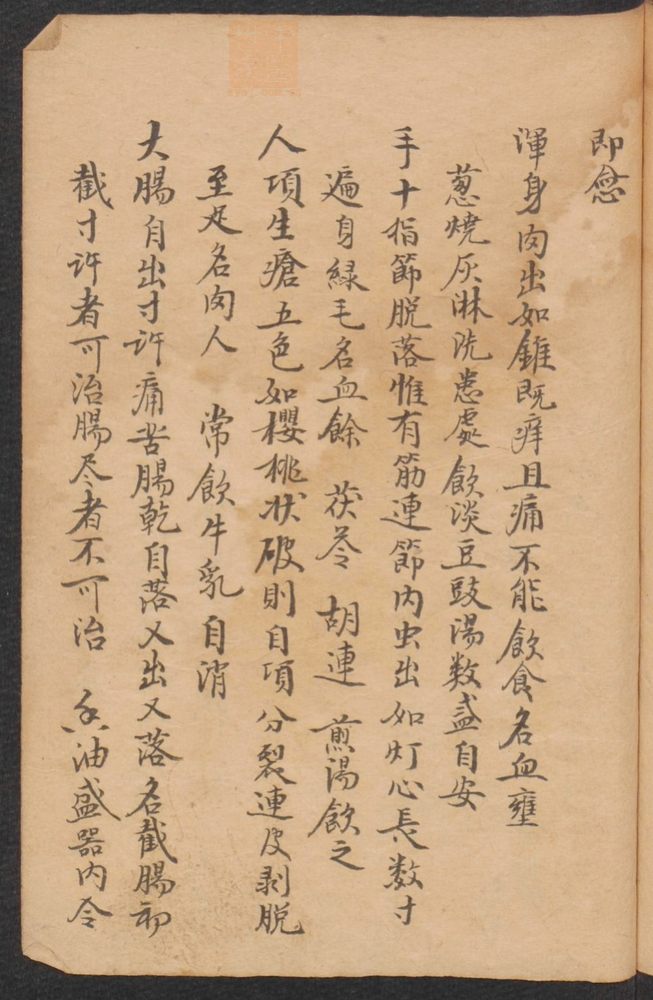 即愈
渾身肉出如錐既痒且痛不能飲食名血壅
葱燒灰淋洗患處飲淡豆豉湯数盞自安
手十指節脱落惟有筋連節内虫出如灯心長数寸
遍身緑毛名血餘　茯苓　胡連　煎湯飲之
人項生瘡五色如櫻桃状破則自項分裂連皮剥脱
至足名肉人　常飲牛乳自消
大腸自出寸許痛苦腸乾自落又出又落名截腸初
截寸許者可治腸尽者不可治　香油盛器内令